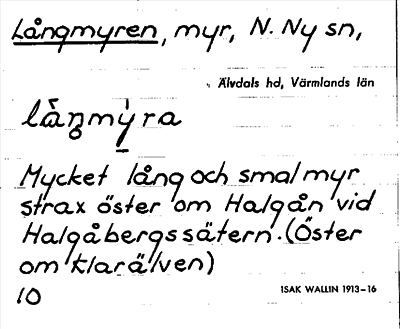 Långmyren, myr, N. Ny sn,
Älvdals hd, Värmlands län
Mycket lång och smal myr
strax öster om Halgån vid
Halgåbergssätern. (Öster
om Klarälven)
10
ISAK WALLIN 1913-16